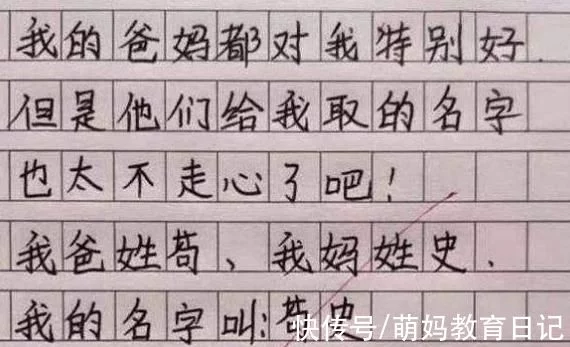 我的爸妈都对我特别好.
但是他们给我取的名字
也太不走心了吧！
我爸姓苟、我妈姓史.
我的名字叫:苟史
快传号/萌妈教育日记